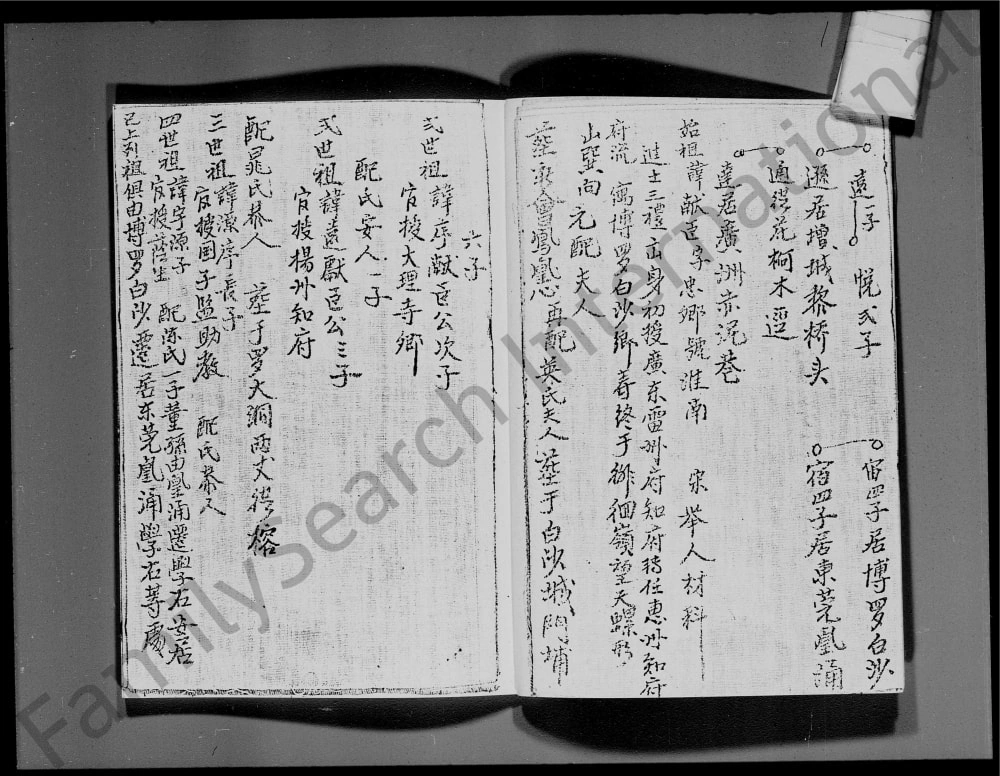 遠一子 悦弍子 宙四子居博罗白沙
遜居增城黎桥头 宿四子居東莞凰涌
適從花桐木逕
達居廣洲赤泥巷
始祖諱献臣字忠卿號淮南 宋举人材科
進士三禮出身初授廣东雷州府知府轉任惠州知府
府流寓博罗白沙鄉寿终于徘徊嶺望天螺形
山巽向元配夫人
葬 會鳳凰 再配英氏夫人葬于白沙城門埔
六子
弍世祖諱序献臣公次子
官授大理寺鄉
配氏安人一子
弍世祖諱遠獻臣公三子
官授楊州知府
配晁氏恭人 葬于罗大洞西丈 榕
三世祖諱源序長子
官授国子監助教 配氏恭人
四世祖諱字源子
官授蔭生 配陈氏一子董孫由凰涌遷学右安居
已上列祖俱由博罗白沙遷居东莞凰涌學右等處
FamilySearch International